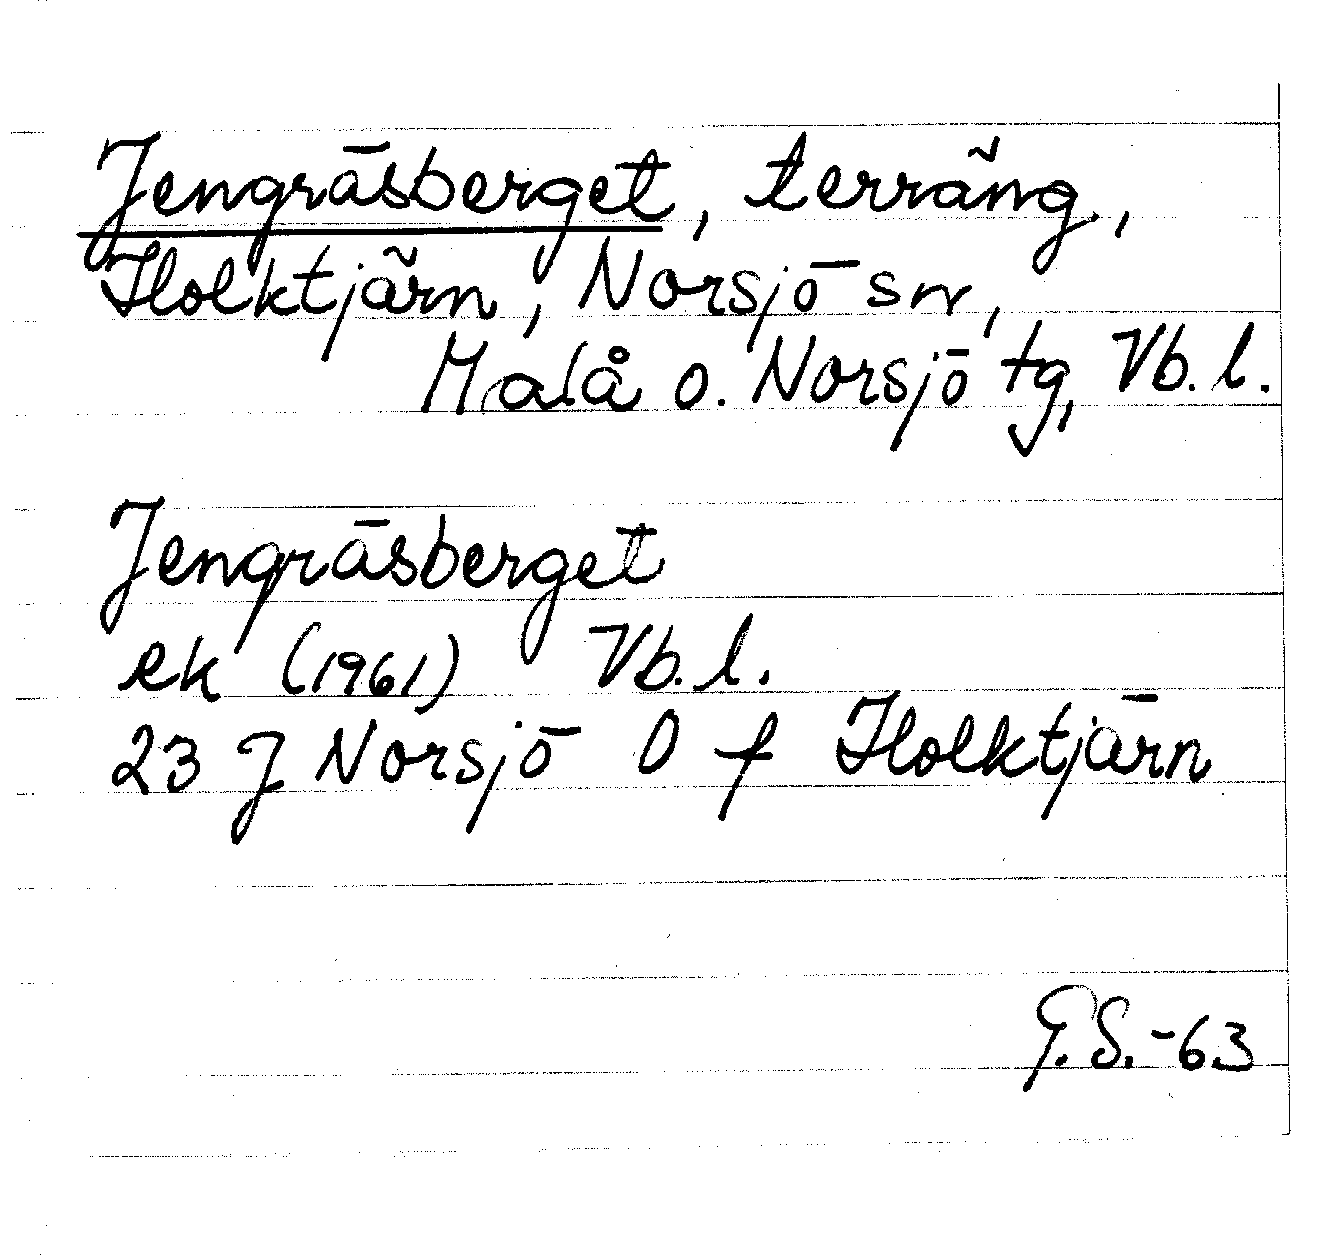 Jengräsberget, terräng,
Holktjärn, Norsjö sn,
Malå o. Norsjö tg, Vb. l.
Jengräsberget
ek (1961) Vb. l.
23 J Norsjö O f Holktjärn
G.S.-63